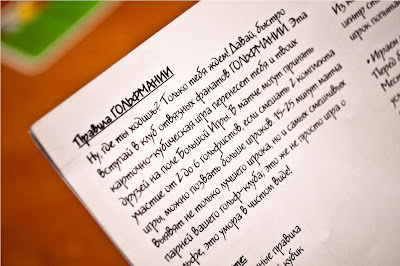 Правила ГОЛЬФМАНИИ
Ну, где ты ходишь? Только тебя ждем! Давай, быстро
вступай в клуб отвязных фанатов ГОЛЬФМАНИИ. Эта
карточно-кубическая игра перенесет тебя и твоих
друзей на поле Большой Игры. В матче могут принять
участие от 2 до 6 гольфистов, если смешать 2 комплекта
игры, можно позвать больше игроков. 15-25 минут матча
выявят не только лучшего игрока, но и самых смешливых
парней вашего гольф-клуба, это же не просто игра о
льфе, это умора в чистом виде!
те
ные правила
кубик
Из ко
центр ст
игрок попыта
• Играем
Перво
Мес